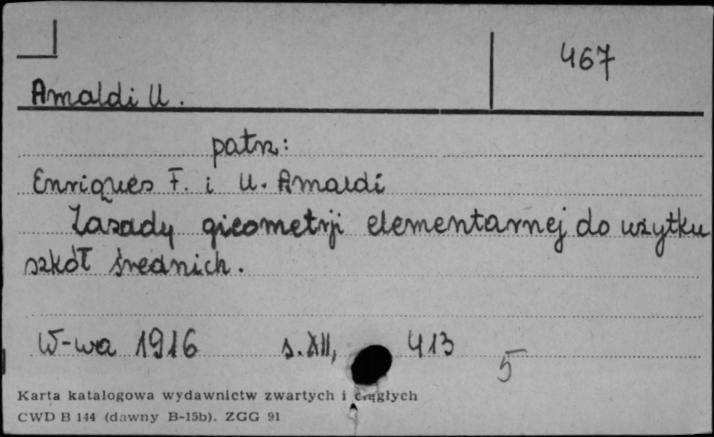 467
Amaldi U.
patrz:
Enriques F. i U. Amaldi
Zasady gieometrji elementarnej do użytku
szkół średnich.
W-wa 1916 s. XII, 413
5
Karta katalogowa wydawnictw zwartych i ciągłych
CWD B 144 (dawny B-15b). ZGG 91